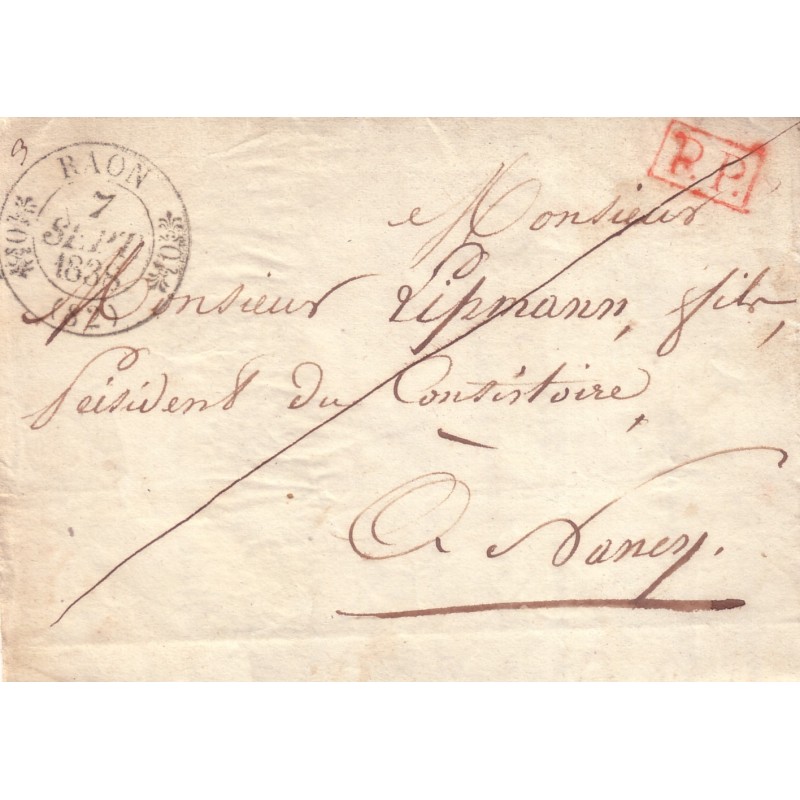 RAON
7
SEPT
1838
(82)
P.P.
Monsieur
Monsieur Lipmann, fils,
Président du Consistoire,
A Nancy.